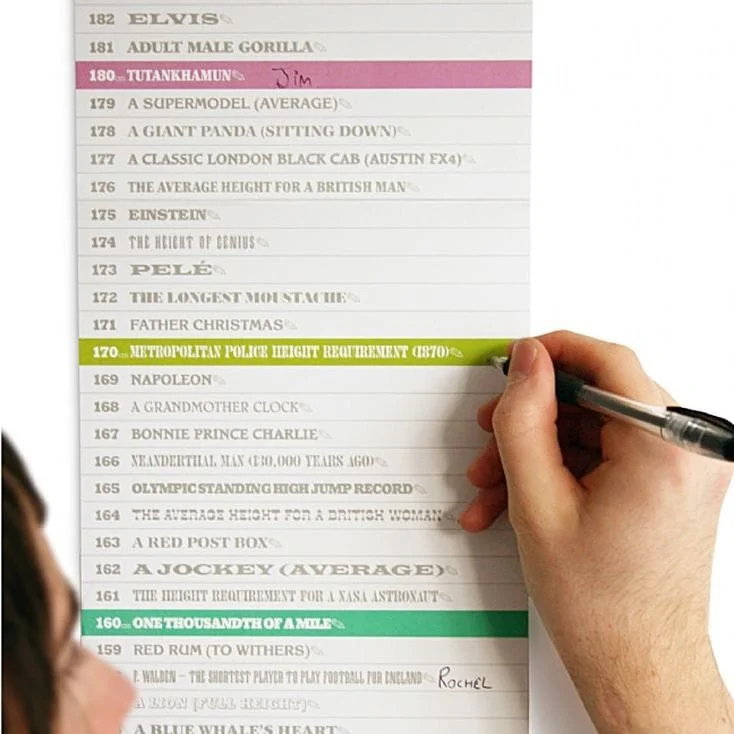 182 ELVIS
181 ADULT MALE GORILLA
180cm TUTANKHAMUN Jim
179 A SUPERMODEL (AVERAGE)
178 A GIANT PANDA (SITTING DOWN)
177 A CLASSIC LONDON BLACK CAB (AUSTIN FX4)
176 THE AVERAGE HEIGHT FOR A BRITISH MAN
175 EINSTEIN
174 THE HEIGHT OF GENIUS
173 PELÉ
172 THE LONGEST MOUSTACHE
171 FATHER CHRISTMAS
170cm METROPOLITAN POLICE HEIGHT REQUIREMENT (1870)
169 NAPOLEON
168 A GRANDMOTHER CLOCK
167 BONNIE PRINCE CHARLIE
166 NEANDERTHAL MAN (130,000 YEARS AGO)
165 OLYMPIC STANDING HIGH JUMP RECORD
164 THE AVERAGE HEIGHT FOR A BRITISH WOMAN
163 A RED POST BOX
162 A JOCKEY (AVERAGE)
161 THE HEIGHT REQUIREMENT FOR A NASA ASTRONAUT
160cm ONE THOUSANDTH OF A MILE
159 RED RUM (TO WITHERS)
F. WALDEN – THE SHORTEST PLAYER TO PLAY FOOTBALL FOR ENGLAND ROCHEL
A LION (FULL HEIGHT)
A BLUE WHALE'S HEART